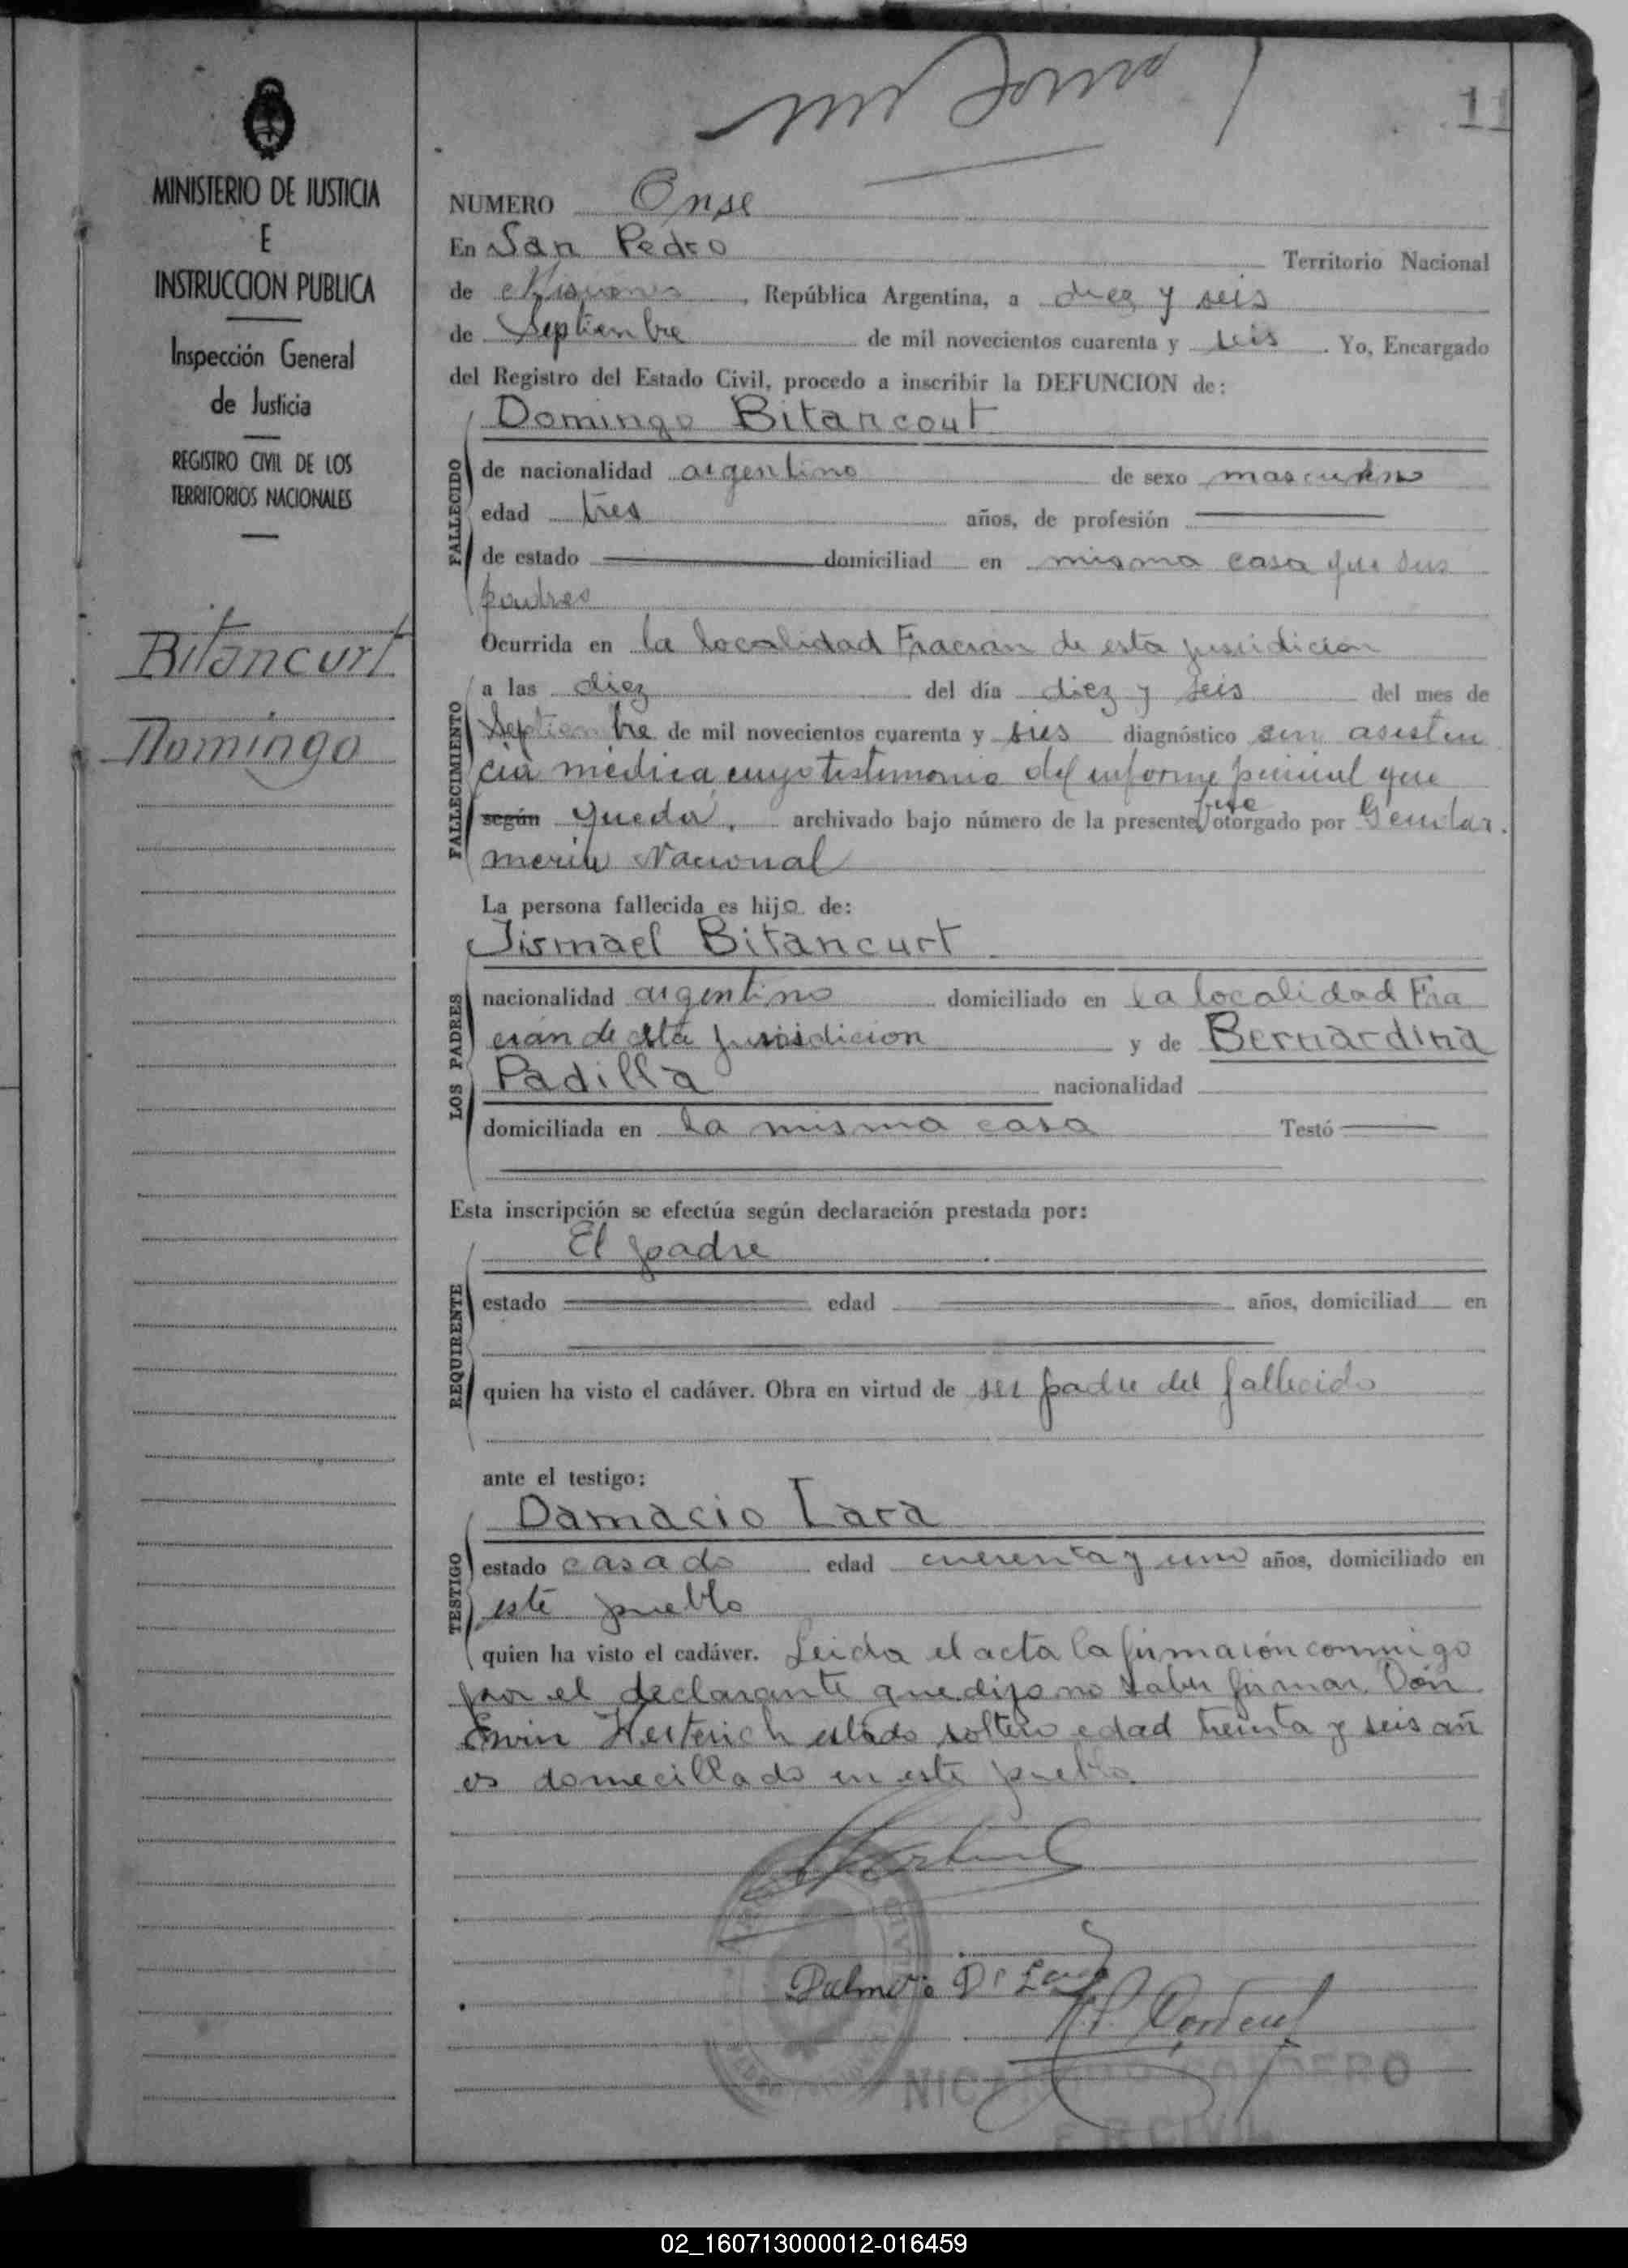 11
MINISTERIO DE JUSTICIA
E
INSTRUCCION PUBLICA
Inspección General
de Justicia
REGISTRO CIVIL DE LOS
TERRITORIOS NACIONALES
Bitancurt
Domingo
NUMERO Onse
En San Pedro Territorio Nacional
de Misiones, República Argentina, a diez y seis
de Septienbre de mil novecientos cuarenta y seis. Yo, Encargado
del Registro del Estado Civil, procedo a inscribir la DEFUNCION de:
Domingo Bitancout
FALLECIDO
de nacionalidad argentino de sexo masculino
edad tres años, de profesión
de estado domiciliad en misma casa que sus
padres
Ocurrida en la localidad Fracran de esta jusridicion
FALLECIMIENTO
a las diez del día diez y seis del mes de
Septienbre de mil novecientos cuarenta y sies diagnóstico sin asisten
cia médica, cuyo testimonio del informe que
según queda, archivado bajo número de la presente fue otorgado por Gendar.
meria Nacional
La persona fallecida es hijo de:
Jismael Bitancurt
LOS PADRES
nacionalidad argentino domiciliado en la localidad Fra
cran de esta jurisdicion y de Bernardina
Padilla nacionalidad
domiciliada en la misma casa Testó
Esta inscripción se efectúa según declaración prestada por:
El padre
REQUIRENTE
estado edad años, domiciliad en
quien ha visto el cadáver. Obra en virtud de ser padre del fallecido
ante el testigo:
Damacio Lara
TESTIGO
estado casado edad cuerenta y uno años, domiciliado en
este pueblo
quien ha visto el cadáver. Leida el acta la firmaron conmigo
por el declarante que dijo no saber firmar Don
Erwin estado soltero edad treinta y seis añ
os domecillado en este pueblo.
CIVIL
NIC CORDERO
E. R. CIVIL
02_160713000012-016459